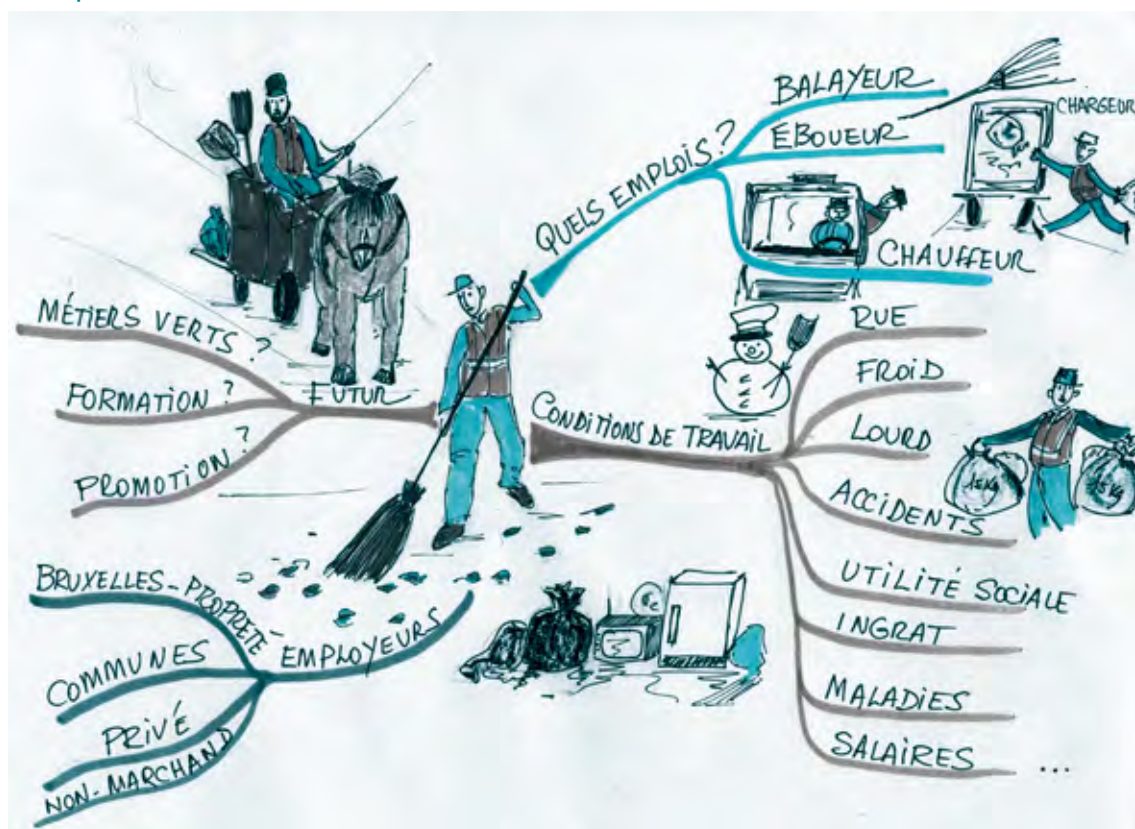 QUELS EMPLOIS ?
BALAYEUR
ÉBOUEUR
CHARGEUR
CHAUFFEUR
CONDITIONS DE TRAVAIL
RUE
FROID
LOURD
ACCIDENTS
15KG
15KG
UTILITÉ SOCIALE
INGRAT
MALADIES
SALAIRES ...
FUTUR
MÉTIERS VERTS ?
FORMATION ?
PROMOTION ?
EMPLOYEURS
BRUXELLES-PROPRETÉ
COMMUNES
PRIVÉ
NON-MARCHAND